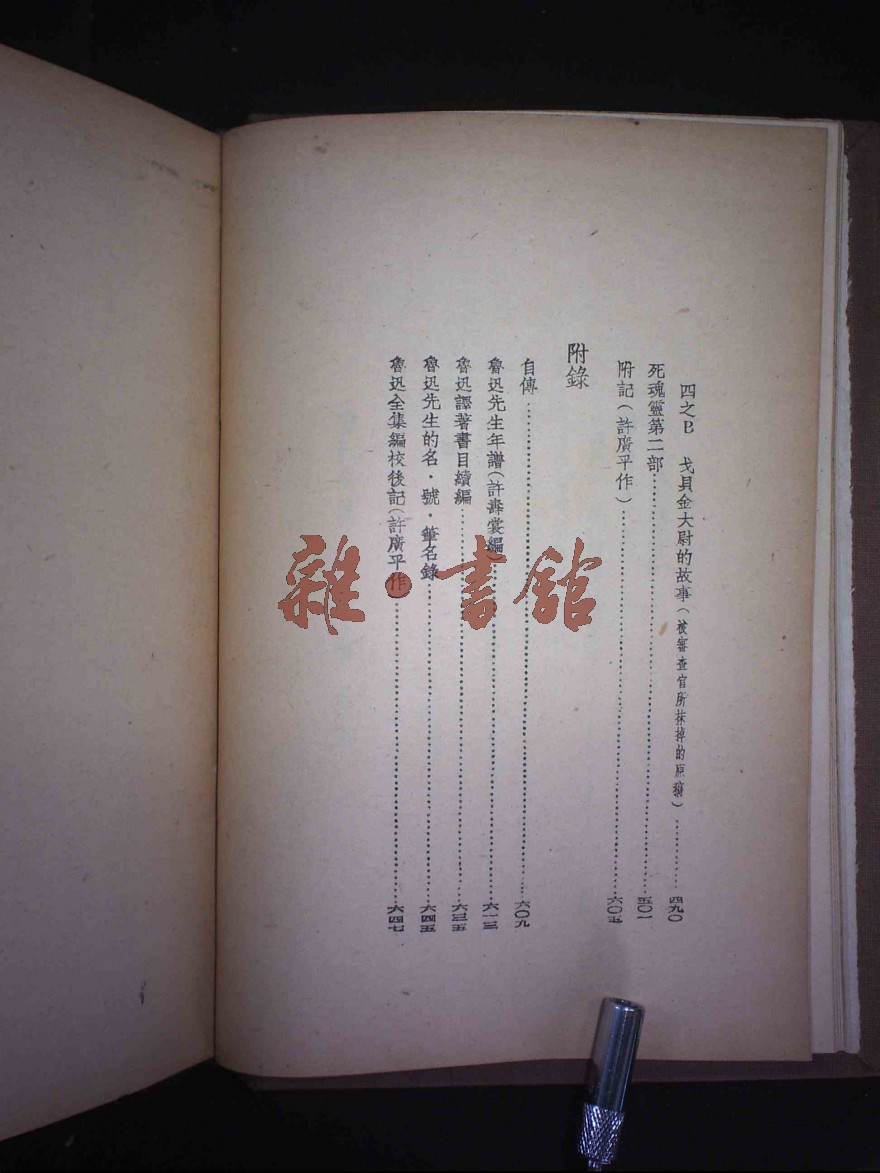 四之B 戈貝金大尉的故事(被審查官所抹掉的原稿)…………四九〇
死魂靈第二部…………五〇一
附記(許廣平作)…………六〇五
附錄
自傳…………六〇九
魯迅先生年譜(許壽裳編)…………六一三
魯迅譯著書目續編…………六三五
魯迅先生的名·號·筆名錄…………六四五
魯迅全集編校後記(許廣平作)…………六四七
雜·書館